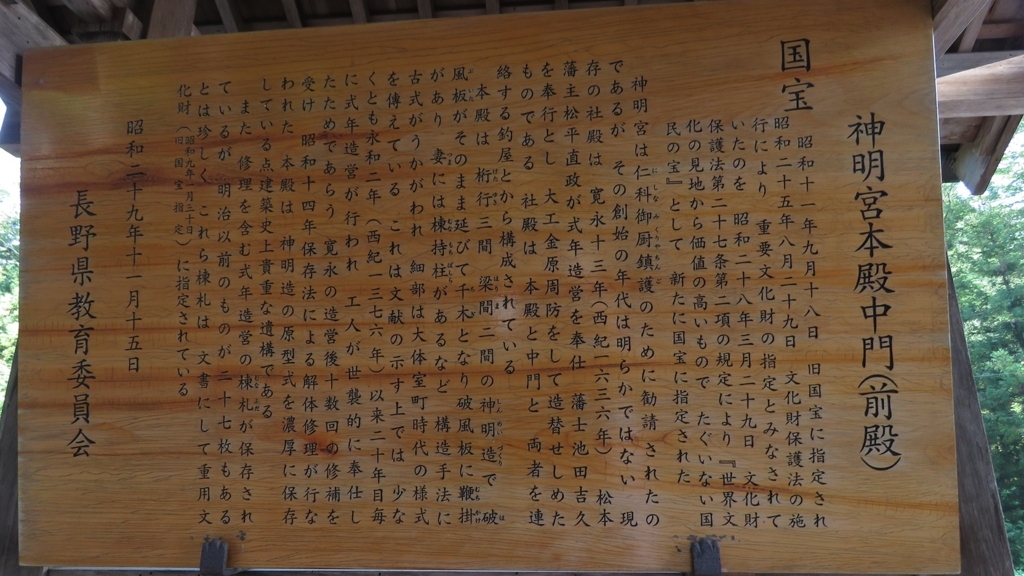 神明宮本殿中門(前殿)
国宝
昭和十一年九月十八日 旧国宝に指定され
昭和二十五年八月二十九日 文化財保護法の施
行により 重要文化財の指定とみなされて
いたのを 昭和二十八年三月二十九日 文化財
保護法第二十七条第二項の規定により『世界文
化の見地から価値の高いもので たぐいない国
民の宝』として 新たに国宝に指定された
神明宮は仁科御厨鎮護のために勧請されたの
であるが その創始の年代は明らかではない 現
存の社殿は 寛永十三年(西紀一六三六年) 松本
藩主松平直政が式年造営を奉仕 藩士池田吉久
を奉行とし 大工金原周防をして造替せしめた
ものである 社殿は 本殿と中門と 両者を連
絡する釣屋とから構成されている
本殿は 桁行三間 梁間二間の神明造で 破
風板がそのまま延びて千木となり破風板に鞭掛
があり 妻には棟持柱があるなど 構造手法に
古式がうかがわれ 細部は大体室町時代の様式
を傳えている これは文献の示す上では 少な
くとも永和二年(西紀一三七六年)以来二十年目毎
に式年造営が行われ 工人が世襲的に奉仕し
たためであらう 寛永の造営後十数回の修補を
受け 昭和十四年保存法による解体修理が行な
われた 本殿は 神明造の原型式を濃厚に保存
している点建築史上貴重な遺構である
また 修理を含む式年造営の棟札が保存され
ているが 明治以前のものが二十七枚もある
とは珍しく これら棟札は 文書にして重用文
化財(昭和九年一月三十日旧国宝指定)に指定されている
昭和二十九年十一月十五日
長野県教育委員会